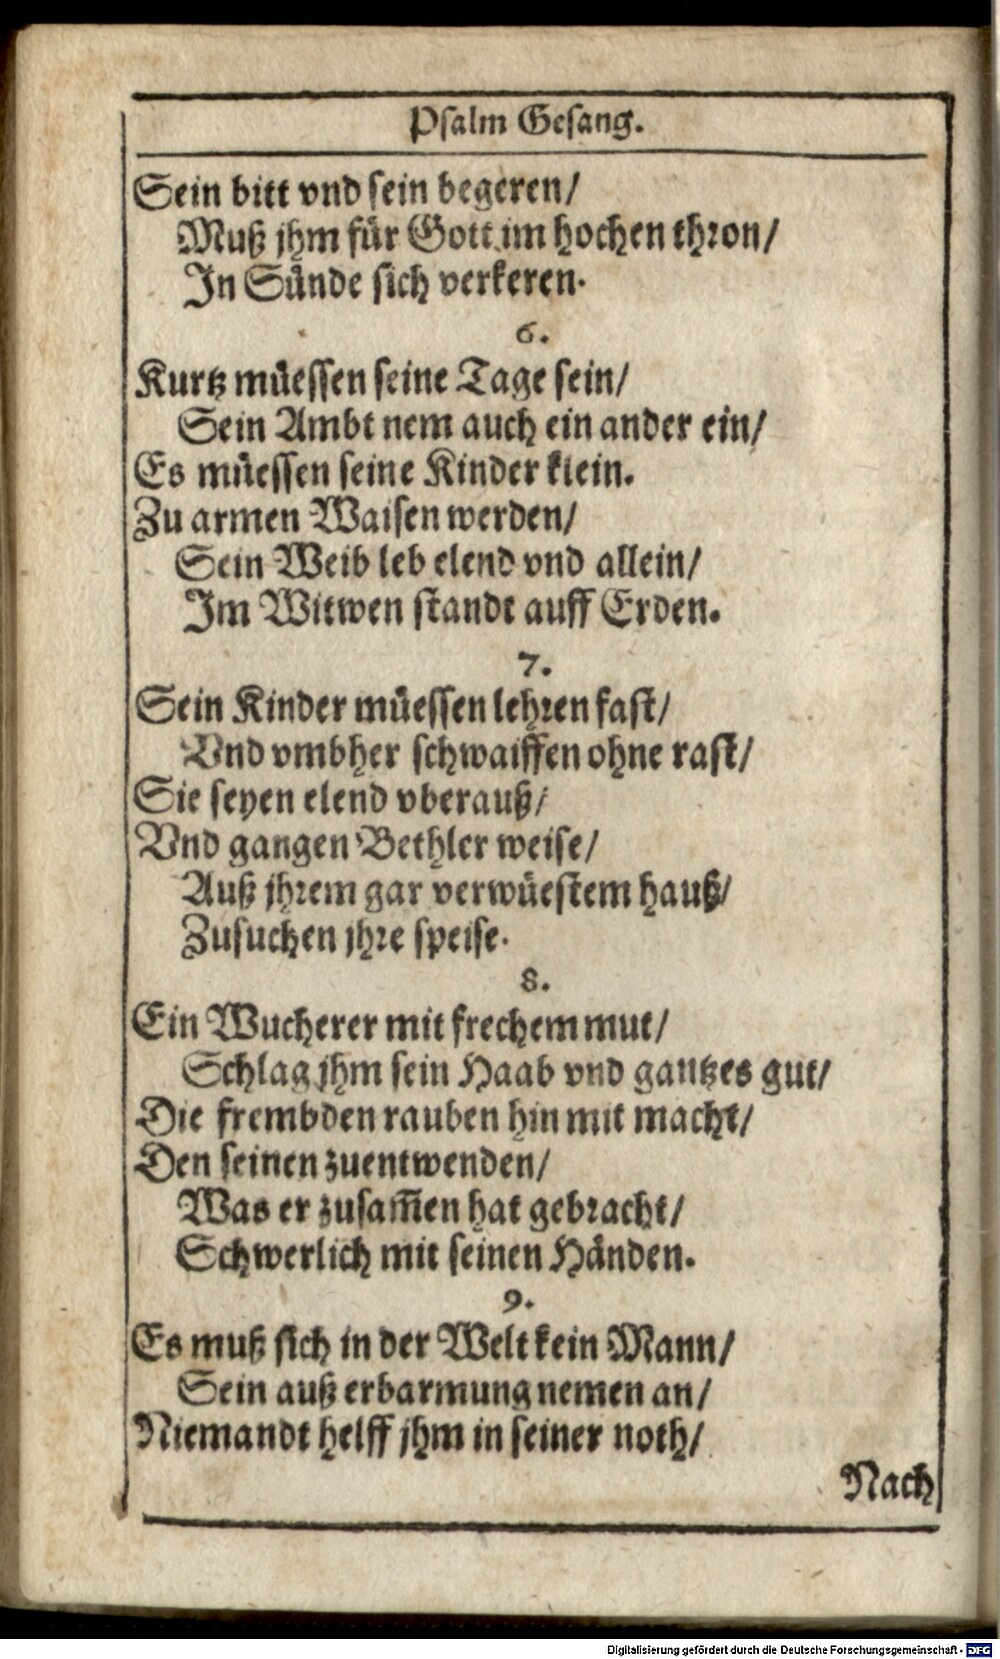 Psalm Gesang.
Sein bitt vnd sein begeren/
Muß jhm für Gott im hochen thron/
In Sünde sich verkeren.
6.
Kurtz müessen seine Tage sein/
Sein Ambt nem auch ein ander ein/
Es müessen seine Kinder klein.
Zu armen Waisen werden/
Sein Weib leb elend vnd allein/
Im Witwen standt auff Erden.
7.
Sein Kinder müessen lehren fast/
Vnd vmbher schwaiffen ohne rast/
Sie seyen elend vberauß/
Vnd gangen Bethler weise/
Auß jhrem gar verwüestem hauß/
Zusuchen jhre speise.
8.
Ein Wucherer mit frechem mut/
Schlag jhm sein Haab vnd gantzes gut/
Die frembden rauben hin mit macht/
Den seinen zuentwenden/
Was er zusam̃en hat gebracht/
Schwerlich mit seinen Händen.
9.
Es muß sich in der Welt kein Mann/
Sein auß erbarmung nemen an/
Niemandt helff jhm in seiner noth/
Nach
Digitalisierung gefördert durch die Deutsche Forschungsgemeinschaft - DFG